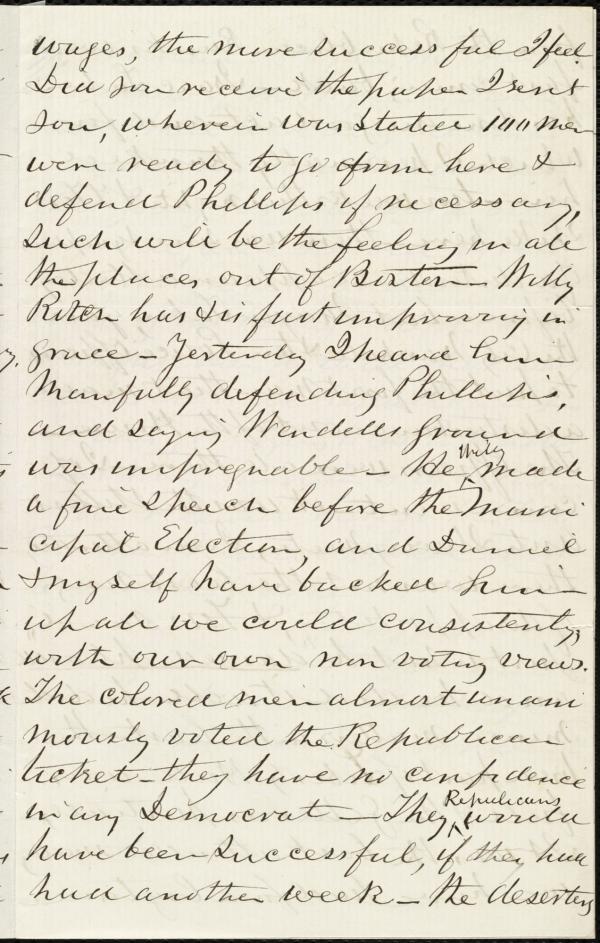 wages, the more successful I feel.
Did you receive the paper I sent
you, wherein was stated 100 men
were ready to go from here &
defend Phillips if necessary,
such will be the feeling in all
the places out of Boston — Willy
Ritch has & is fast improving in
grace — Yesterday I heard him
manfully defending Phillips,
and saying Wendells ground
was impregnable — He, Willy made
a fine speech before the Muni
cipal Election, and Daniel
& myself have backed him
up all we could consistently,
with our own non voting views.
The colored men almost unani
mously voted the Republican
ticket — they have no confidence
in any Democrat — They, Republicans would
have been successful, if they had
had another week — the deserting